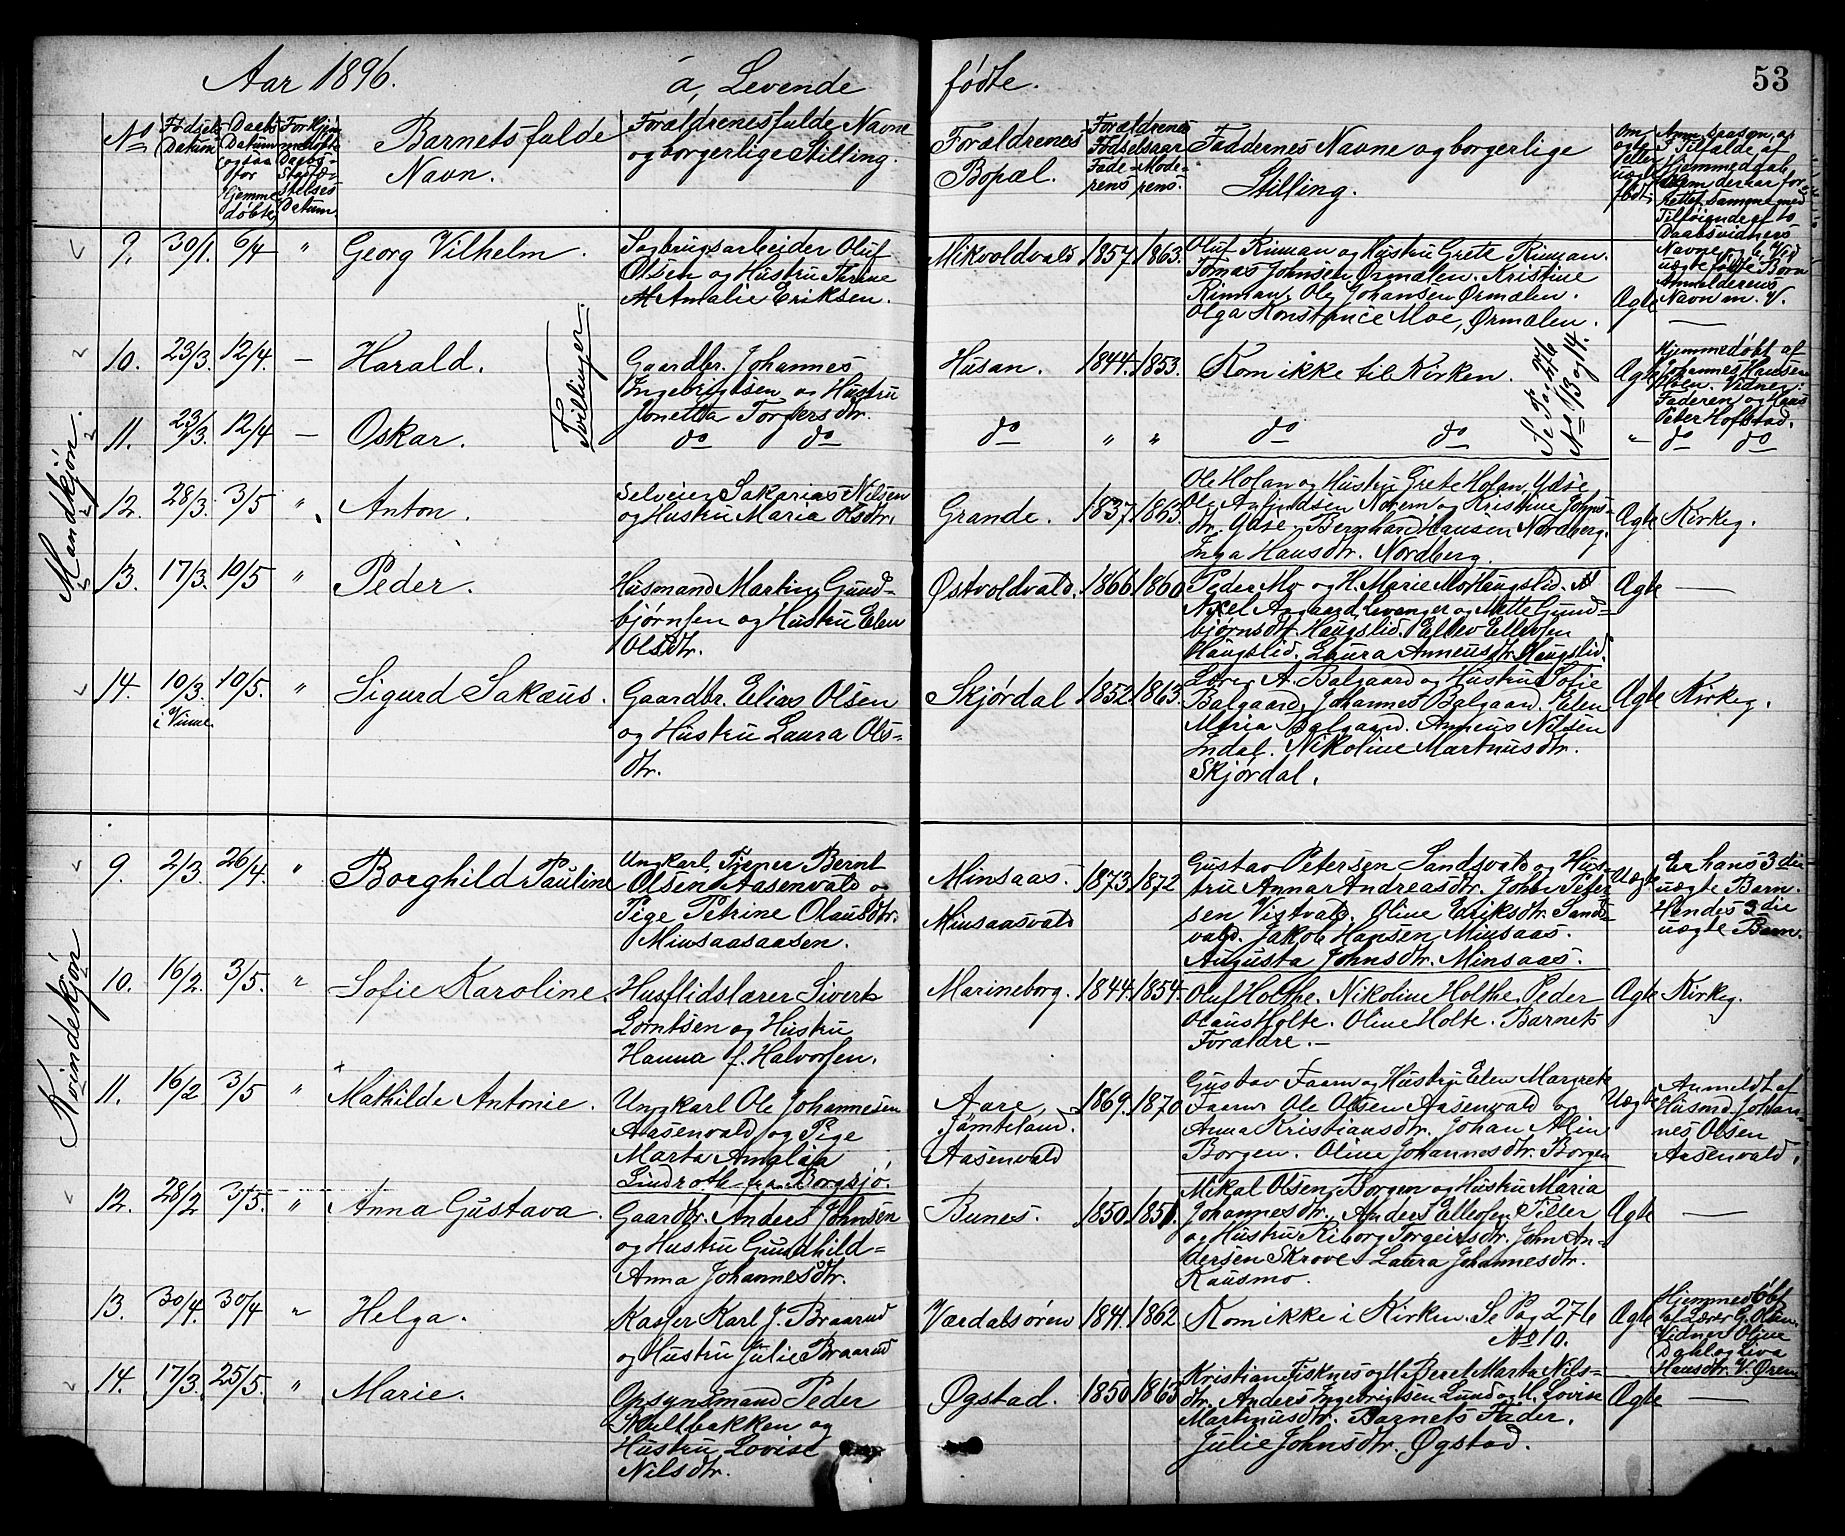 Aar 1896. a, Levende fødte. 53
No Fødsels Datum Daabs Datum ogsaa for Hjemme døbte Barnets fulde Navn. Forældrenes fulde Navne og borgerlige Stilling. Forældrenes Bopæl. Forældrenes Fødselsaar Faderens Moderens. Faddernes Navne og borgerlige Stilling. Om ægte eller uægte født
Mandkjøn.
9. 30/1. 6/4 " Georg Vilhelm. Sagbrugsarbeider Oluf Mikvoldvald 1857. 1863. Oluf Rinman og Hustru Grete Rinman.
Olsen og Hustru Therine Tomas Johnsen Ørmælen. Kristine
Amalie Eriksen. Rinman, Ole Johansen Ørmælen. Ægte
Olga Konstance Moe, Ørmælen. —
Tvillinger.
10. 23/3. 12/4. — Harald. Gaardbr. Johannes Husan. 1844. 1853. Kom ikke til Kirken. Se Pag. 276 No 13 og 14. Ægte Hjemmedøbt af
Ingebrigtsen og Hustru Johannes Hansen
Jonetta Torgersdtr. Vidner: Faderen og
11. 23/3. 12/4 — Oskar. do do do " " do do " Peter Hofstad. do do
12. 28/3. 3/5 " Anton. Selveier Sakarias Nilsen Grande. 1837. 1863. Ole Holan og Hustru Grete Holan, Ydse
og Hustru Maria Olsdtr. Norem og Kristine Johns- Ægte Kirkeg.
dtr. Ydse, Bernhard Hansen Nordberg.
Inga Hansdtr. Nordberg.
13. 17/3. 10/5 " Peder. Husmand Martin Gund- Østvoldvald. 1866. 1860 Peder Mo og H. Marie Mo Haugslid. Ægte —
bjørnsen og Hustru Elen Axel Aagaard, Levanger og Mette Gund-
Olsdtr. bjørnsdtr. Haugslid. Ellev Ellevsen
Haugslid. Laura Anneusdtr. Haugslid.
14. 10/3. 10/5. " Sigurd Sakæus. Gaardbr. Elias Olsen Skjørdal 1852. 1863. Lærer A. Balgaard og Hustru Sofie Ægte Kirkeg.
i Vinne og Hustru Laura Ols- Balgaard, Johannes Balgaard. Elen
dtr. Maria Balgaard. Anneus Nilsen
Indal. Nikoline Martinusdtr.
Skjørdal.
Kvindekjøn
9. 2/3. 26/4. " Borghild Pauline Ungkarl, Tjener Bernt Minsaas. 1873. 1872 Gustav Petersen Sandsvald og Hus- Uægte Er hans 3die
Olsen Aasenvald og Minsaasvald tru Anna Andreasdtr. Peter uægte Barn.
Pige Petrine Olausdtr. sen Vistvald. Oline Eriksdtr. Sands- Hendes 3die
Minsaasaasen. vald. Jakob Hansen Minsaas. uægte Barn.
Augusta Johnsdtr. Minsaas.
10. 16/2. 3/5. " Sofie Karoline. Husflidslærer Sivert Marineborg. 1844. 1854. Oluf Holthe. Nikoline Holthe. Peder Ægte Kirkeg.
Lorntsen og Hustru Olaus Holte. Oline Holte. Barnets
Hanna f. Halvorsen. Forældre. —
11. 16/2 3/5 " Mathilde Antonie. Ungkarl Ole Johannesen Aare, 1869. 1870 Gustav Faarn og Hustru Elen Margrete Uægte Anmeldt af
Aasenvald og Pige Jämteland. Faarn. Ole Olsen Aasenvald og Husmd. Johan-
Marta Amalia Aasenvald Anna Kristiansdtr. Johan Alin nes Olsen
Lindroth fra Borgsjö. Borgen. Oline Johannesdtr. Borgen Aasenvald.
12. 28/2 3/5. " Anna Gustava. Gaardbr. Anders Johnsen Bunes. 1850. 1851. Mikal Olsen, Borgen og Hustru Maria Ægte —
og Hustru Gundhild- Johannesdtr. Anders Ellevsen Tiller
Anna Johannesdtr. og Hustru Riborg Torgeirsdtr. John An-
dersen Skrove. Laura Johannesdtr.
Kausmo.
13. 30/4. 30/4 " Helga. Kasser Karl J. Braarud Værdalsøren 1841. 1862. Kom ikke i Kirken. Se Pag 276 Ægte Hjemmedøbt
og Hustru Julie Braarud No 10. af Lærer G. Olsen. Vidner Oline Dahl og Liva Hansdtr. V. Øren
14. 17/3. 25/5. " Marie. Opsynsmand Peder Øgstad. 1850 1863 Kristian Fisknes og H. Beret Marta Nils- Ægte —
Skultbakken og dtr. Anders Ingebrigtsen Lund og H. Lovise
Hustru Lovise Martinusdtr. Barnets Fader.
Nilsdtr. Julie Johnsdtr. Øgstad.